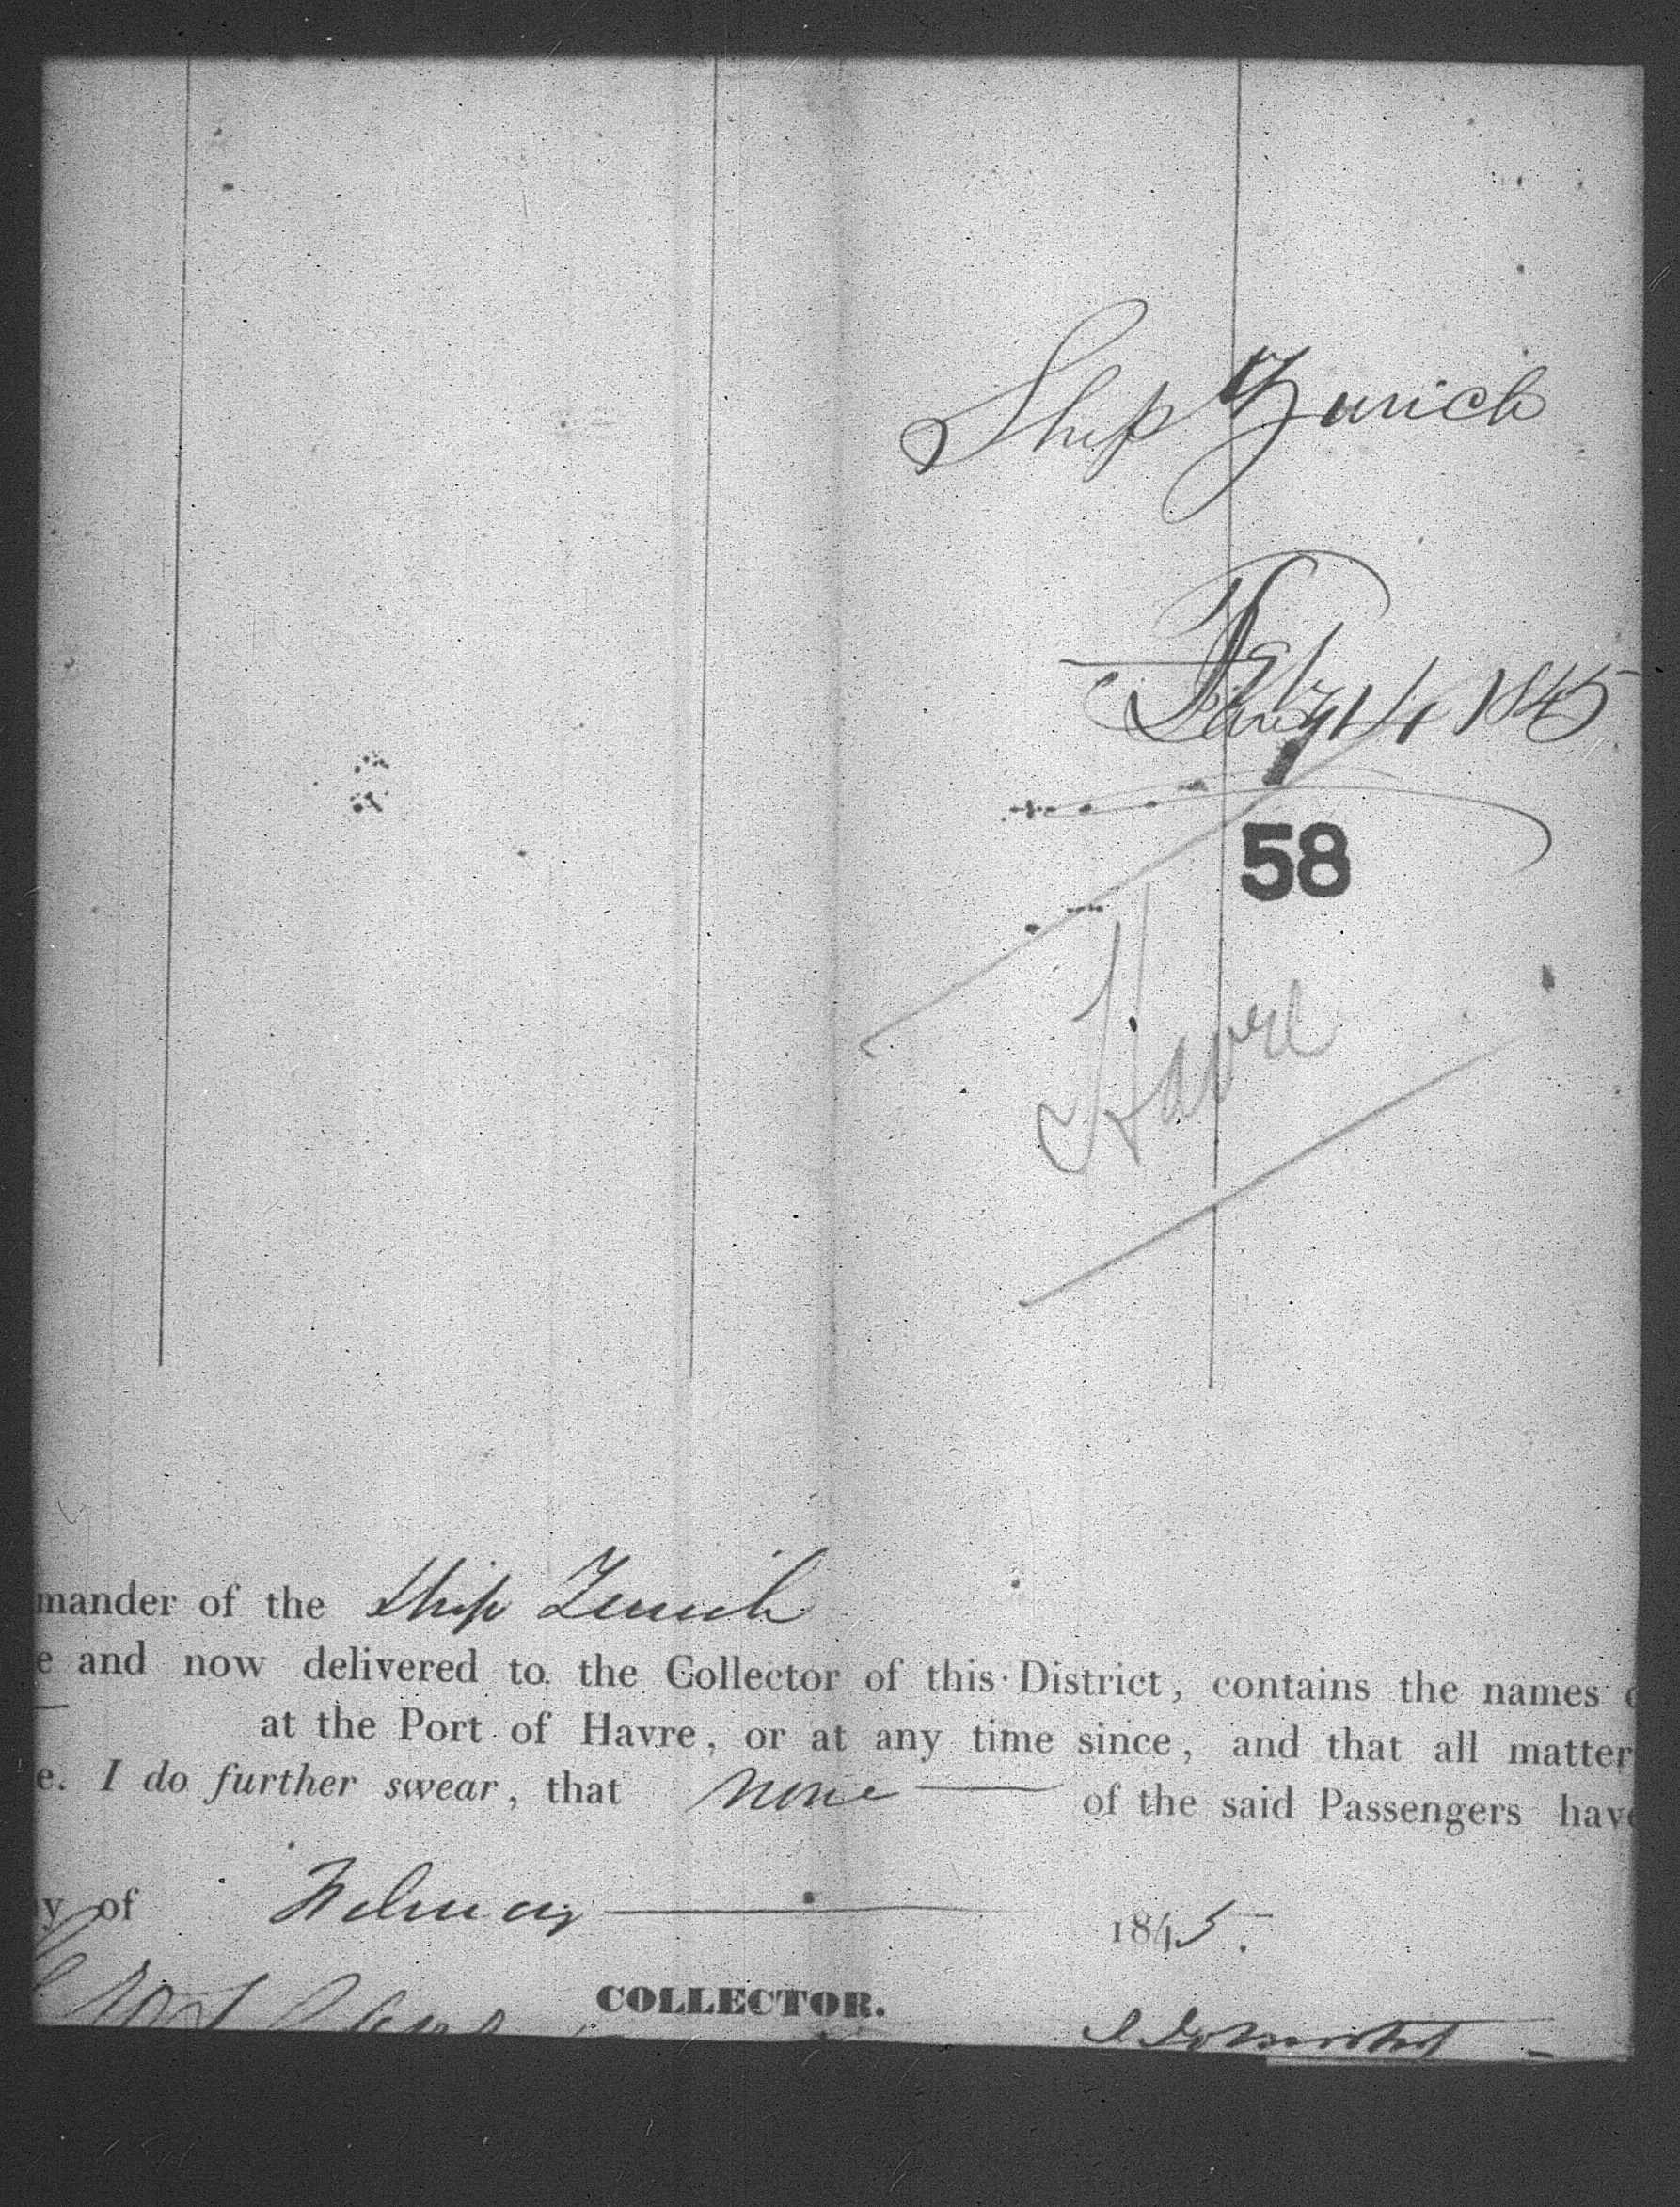 Ship Zurich
Feby 14 1845
58
Havre
mander of the Ship Zurich
e and now delivered to the Collector of this District, contains the names
at the Port of Havre, or at any time since, and that all matter
e. I do further swear, that none of the said Passengers have
y of February 1845.
COLLECTOR.